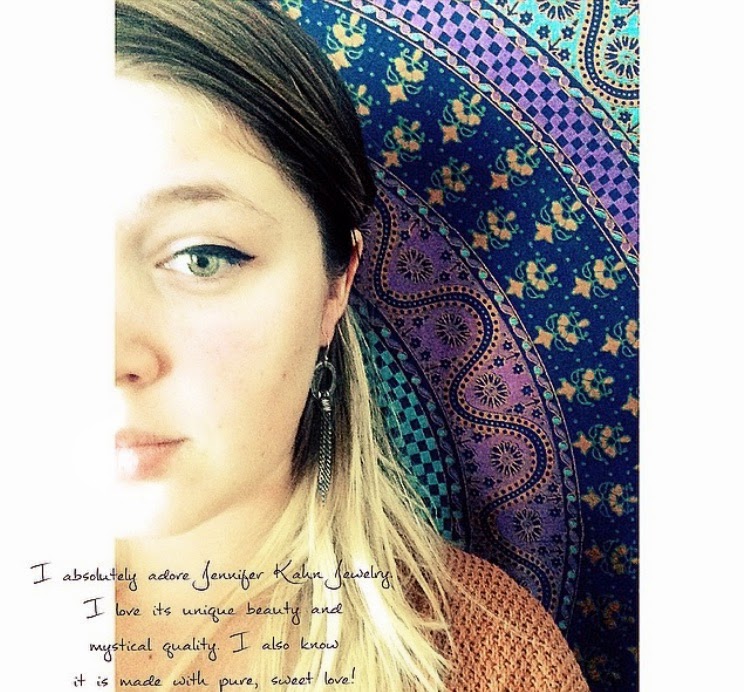 I absolutely adore Jennifer Kahn Jewelry.
I love its unique beauty and
mystical quality. I also know
it is made with pure, sweet love!